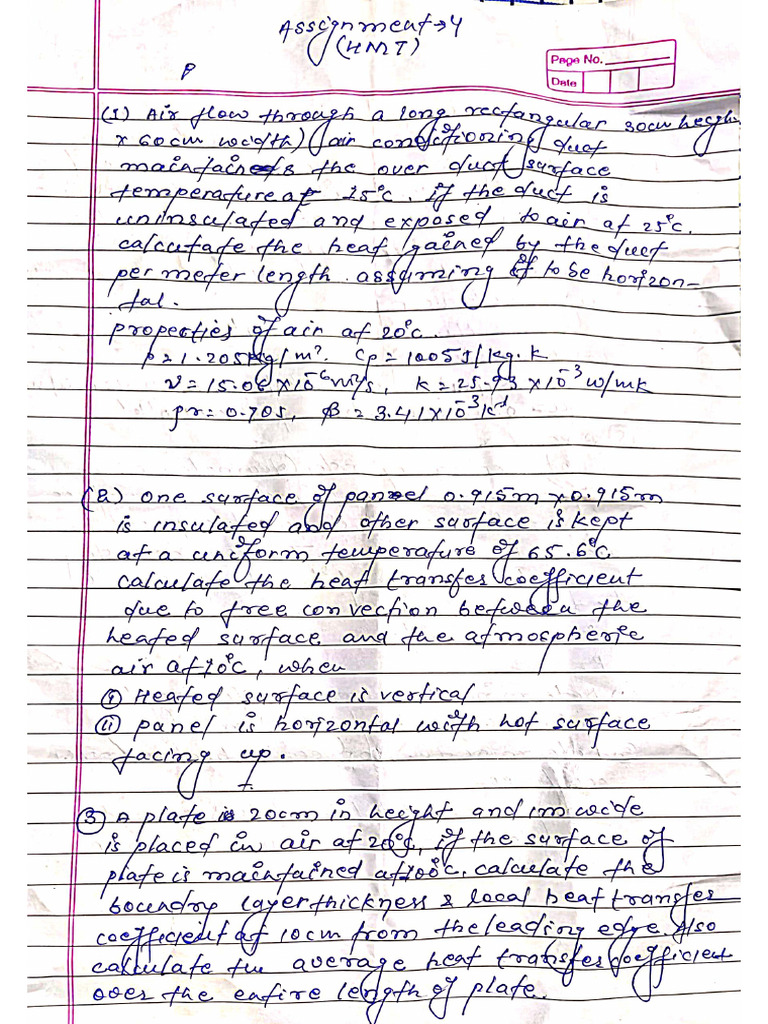 Assignment→4
(HMT)
Page No.
Date
P
(1) Air flow through a long rectangular 30cm height
x 60cm width) (air conditioning duct
maintains the over duct surface
temperature at 15°c. if the duct is
uninsulated and exposed to air at 25°c.
calcutate the heat gained by the duct
per meter length. assuming it to be horizon-
tal.
properties of air at 20°c.
ρ=1.205kg/m³. Cp=1005J/kg.k
ν=15.06×10⁻⁶m²/s, k=25.93×10⁻³w/mk
pr=0.705, β=3.41×10⁻³k⁻¹
(2) one surface of panel 0.915m x 0.915m
is insulated and other surface is kept
at a uniform temperature of 65.6°c.
calculate the heat transfer coefficient
due to free convection between the
heated surface and the atmospheric
air at 10°c, when
(i) Heated surface is vertical
(ii) panel is horizontal with hot surface
facing up.
(3) A plate is 20cm in height and 1m wide
is placed in air at 20°c, if the surface of
plate is maintained at 100°c. calculate the
boundry layer thickness & local heat transfer
coefficient at 10cm from the leading edge. Also
calculate the average heat transfer coefficient
over the entire length of plate.